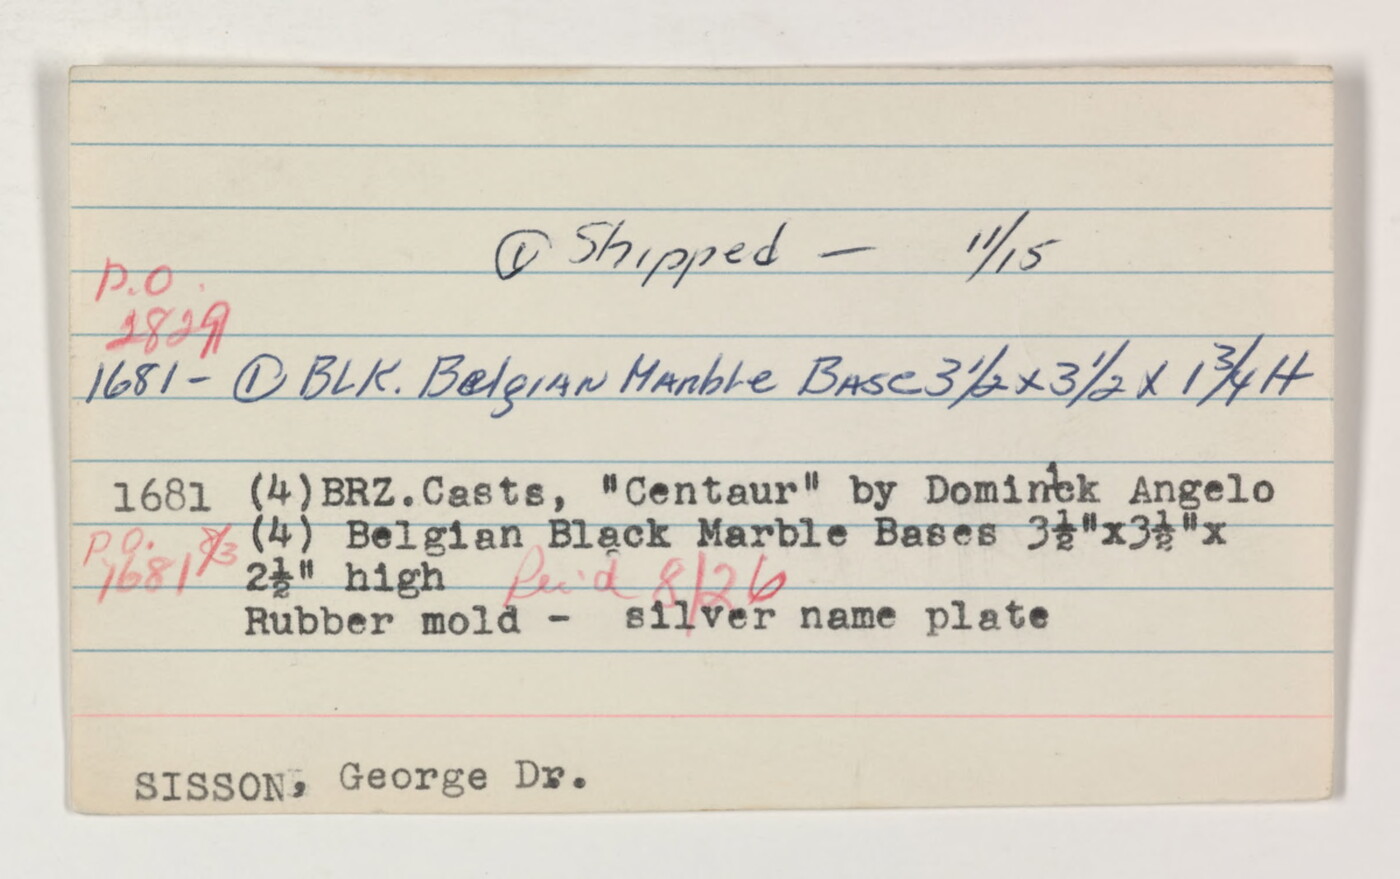 ① Shipped — 11/15
P.O.
2829
1681 - ① BLK. Belgian Marble Base 3 1/2 x 3 1/2 x 1 3/4 H
1681 (4)BRZ.Casts, "Centaur" by Dominick Angelo
P.O. 8/3 (4) Belgian Black Marble Bases 3½"x3½"x
1681 2½" high Rec'd 8/26
Rubber mold - silver name plate
SISSON, George Dr.